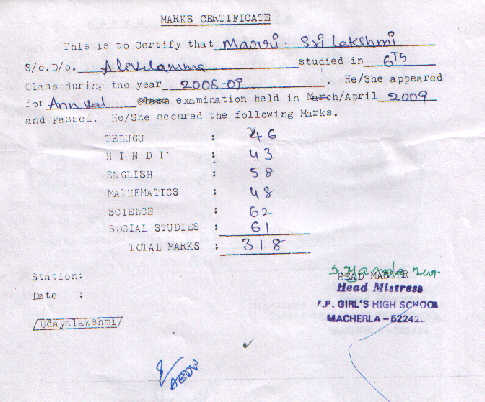 MARKS CERTIFICATE
This is to Certify that Magiri Sri Lakshmi
S/o.D/o. Alivelamma studied in 6TH
Class during the year 2008-09 . He/She appeared
for Annual examination held in March/April 2009
and Passed. He/She secured the following Marks.
TELUGU : 46
HINDI : 43
ENGLISH : 58
MATHEMATICS : 48
SCIENCE : 62
SOCIAL STUDIES : 61
TOTAL MARKS : 318
Station:
Date :
HEAD MASTER
Head Mistress
GIRL'S HIGH SCHOOL
MACHERLA-
/Udayalakshmi/